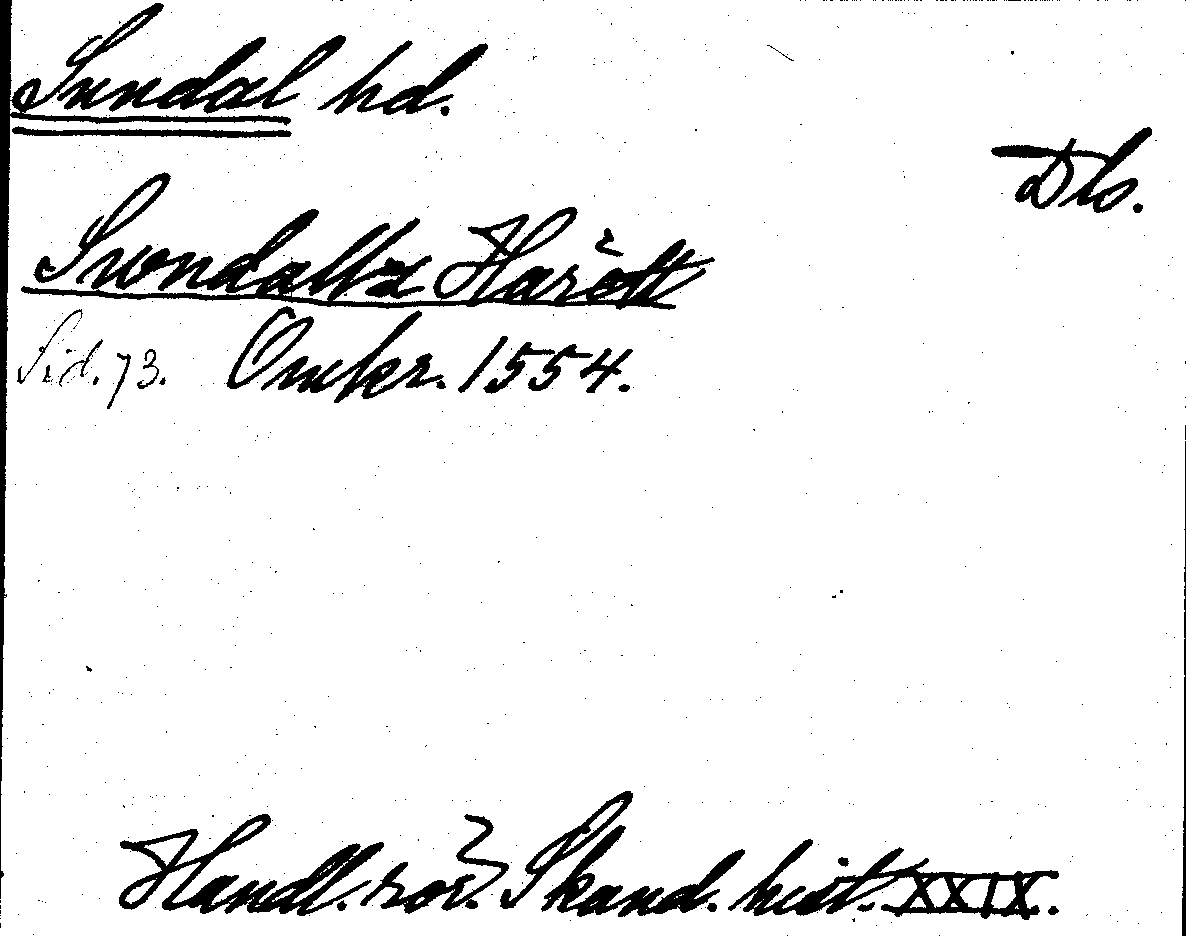 Sundal hd.
Dls.
Swondallz Harött
Sid. 73. Omkr. 1554.
Handl. rör. Skand. hist. XXIX.